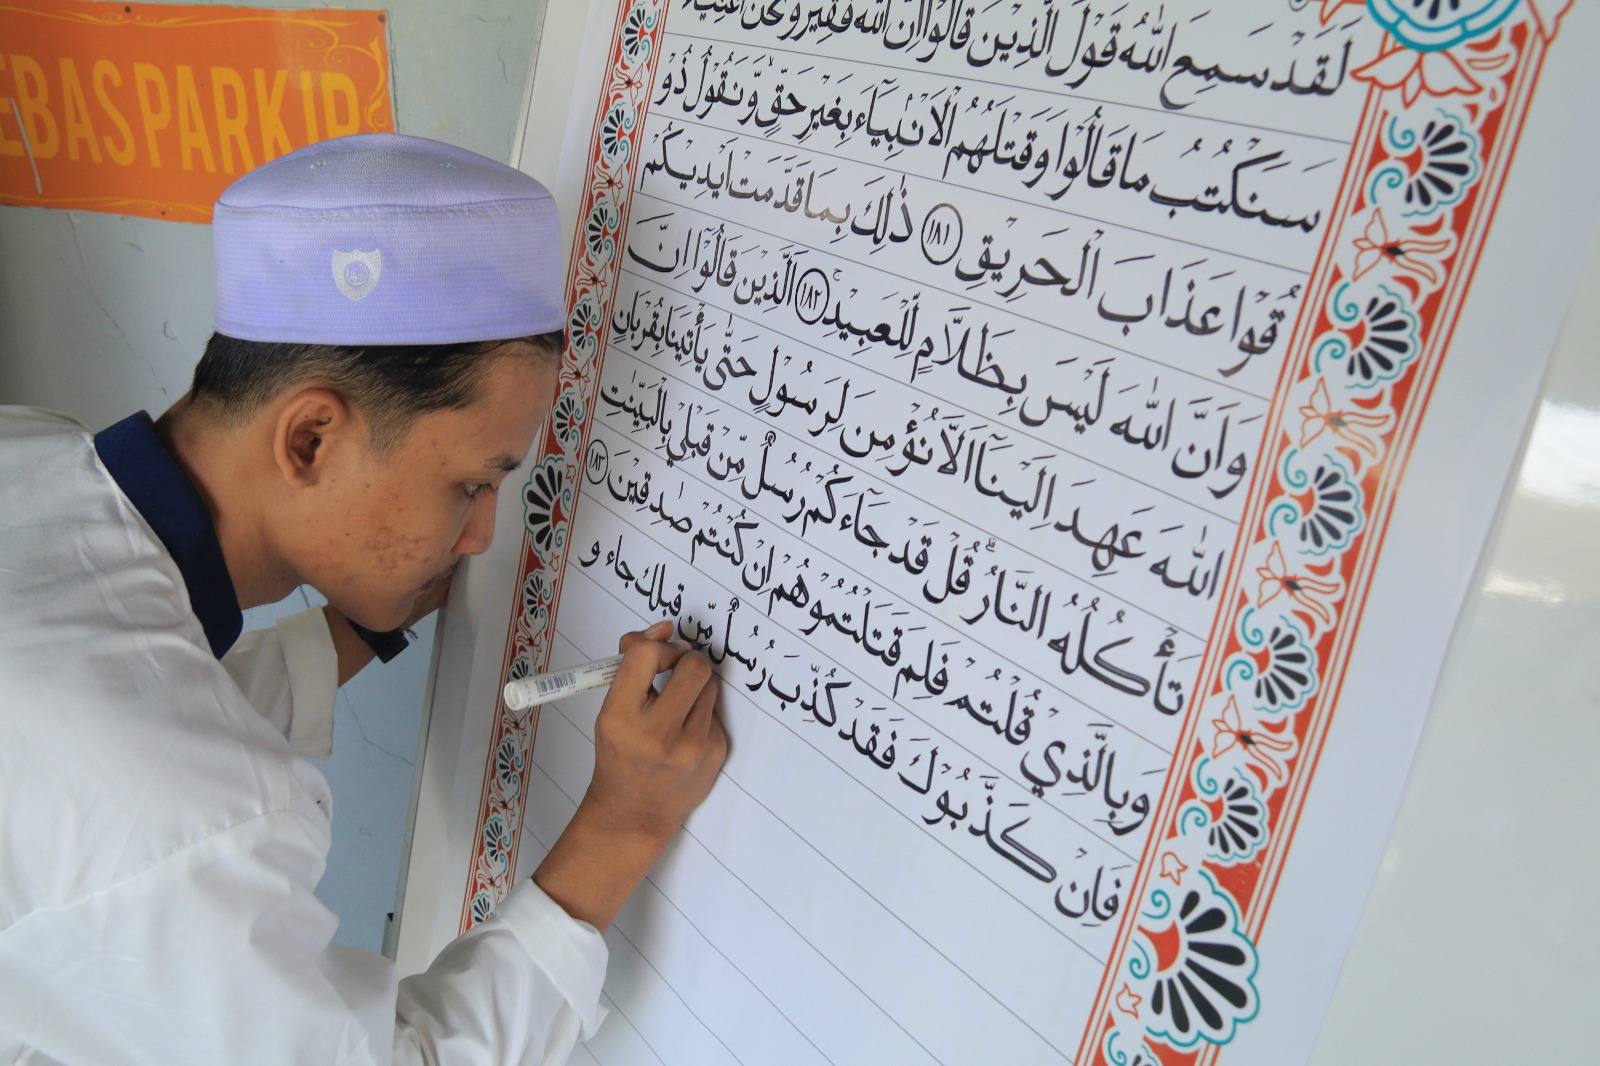 EBAS PARKIR
لَقَدْ سَمِعَ اللّٰهُ قَوْلَ الَّذِيْنَ قَالُوْٓا اِنَّ اللّٰهَ فَقِيْرٌ وَّنَحْنُ اَغْنِيَاۤءُ
سَنَكْتُبُ مَا قَالُوْا وَقَتْلَهُمُ الْاَنْۢبِيَاۤءَ بِغَيْرِ حَقٍّ وَّنَقُوْلُ ذُوْ
قُوْا عَذَابَ الْحَرِيْقِ ١٨١ ذٰلِكَ بِمَا قَدَّمَتْ اَيْدِيْكُمْ
وَاَنَّ اللّٰهَ لَيْسَ بِظَلَّامٍ لِّلْعَبِيْدِ ۚ ١٨٢ اَلَّذِيْنَ قَالُوْٓا اِنَّ
اللّٰهَ عَهِدَ اِلَيْنَآ اَلَّا نُؤْمِنَ لِرَسُوْلٍ حَتّٰى يَأْتِيَنَا بِقُرْبَانٍ
تَأْكُلُهُ النَّارُ ۗ قُلْ قَدْ جَاۤءَكُمْ رُسُلٌ مِّنْ قَبْلِيْ بِالْبَيِّنٰتِ
وَبِالَّذِيْ قُلْتُمْ فَلِمَ قَتَلْتُمُوْهُمْ اِنْ كُنْتُمْ صٰدِقِيْنَ ١٨٣
فَاِنْ كَذَّبُوْكَ فَقَدْ كُذِّبَ رُسُلٌ مِّنْ قبلك جاء و